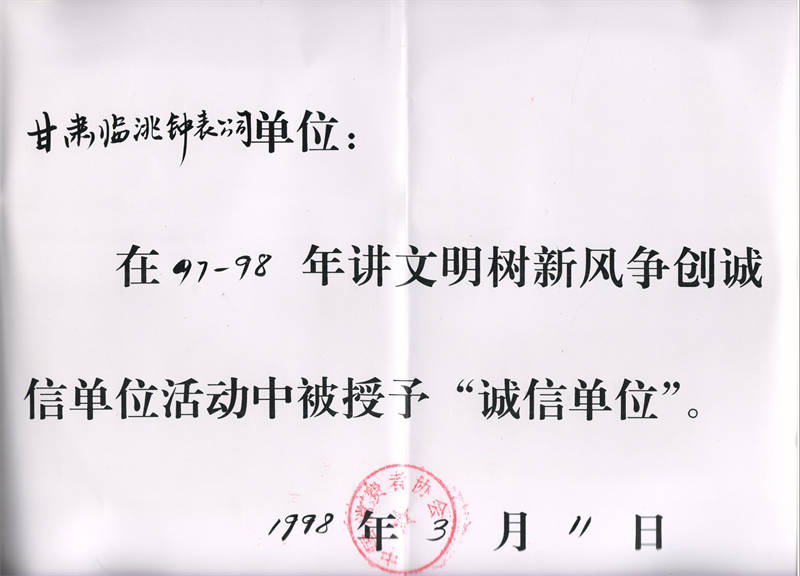 甘肃临洮钟表公司单位：
在97-98 年讲文明树新风争创诚
信单位活动中被授予“诚信单位”。
1998年3月11日